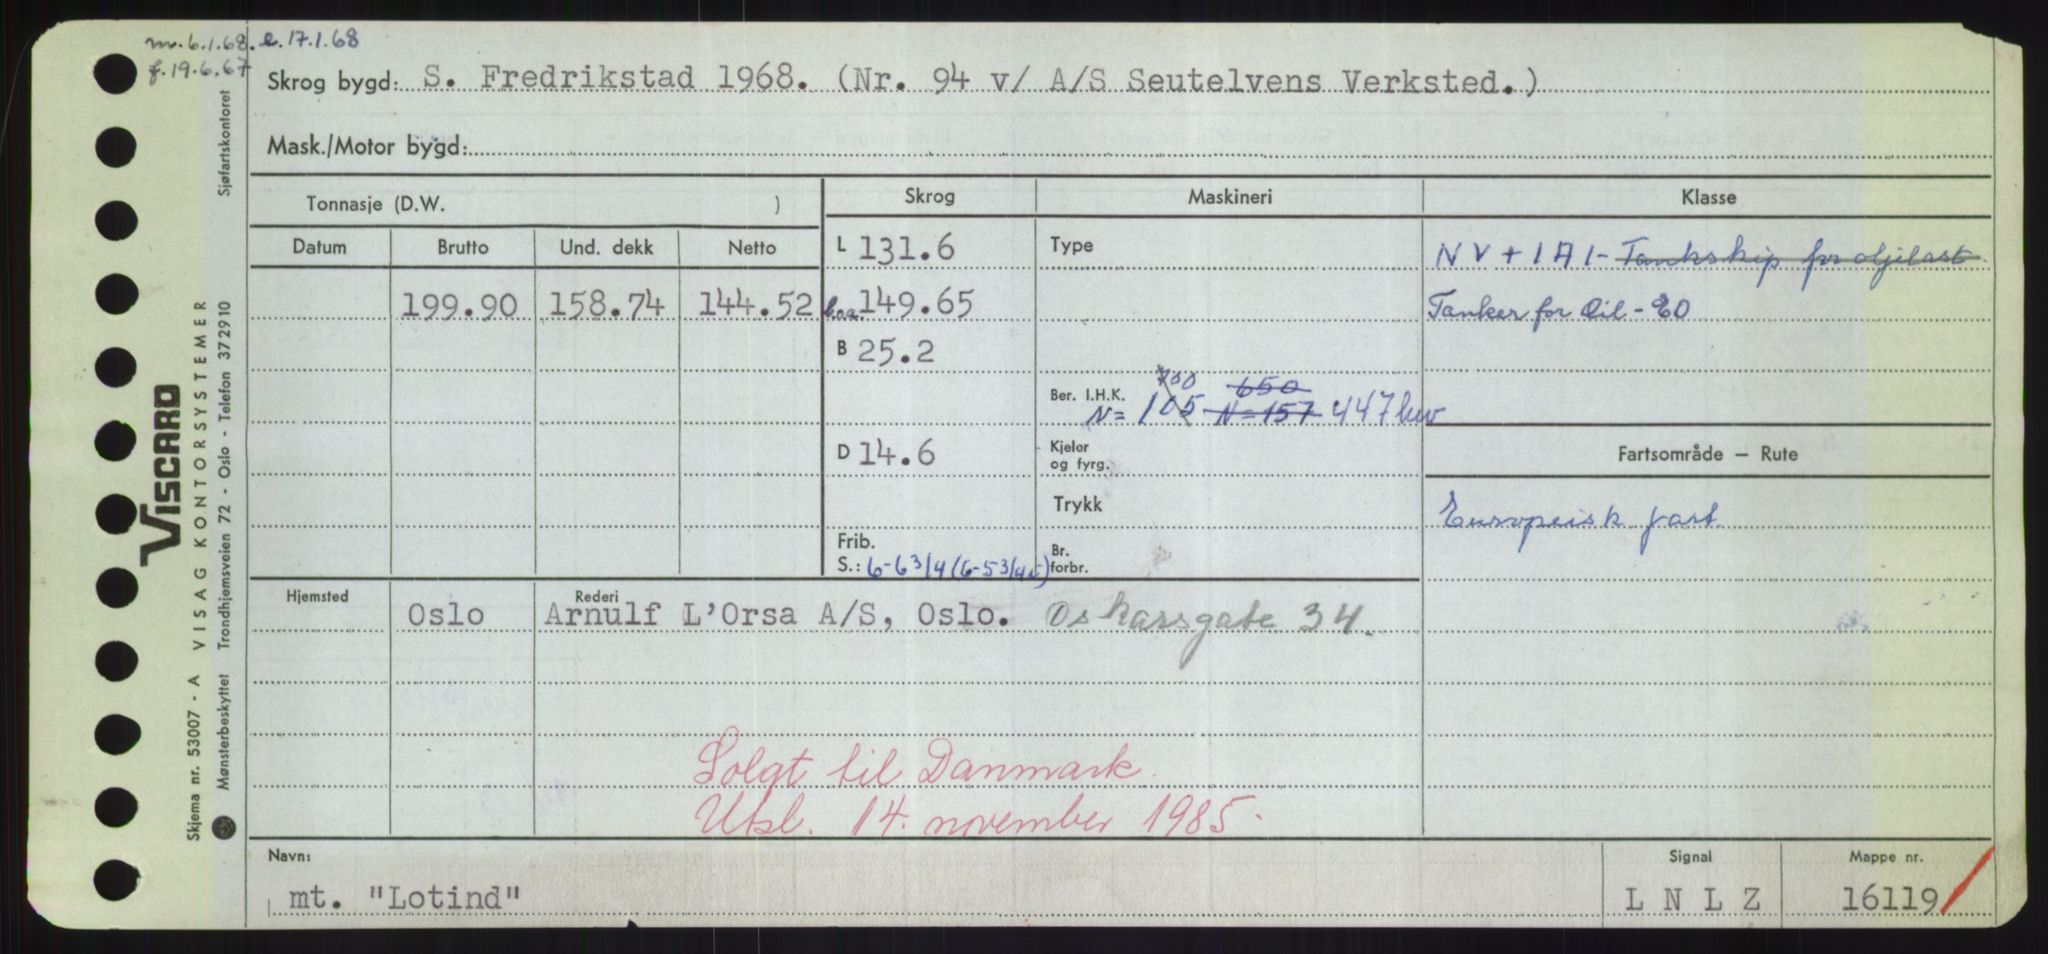 m. 6.1.68. e. 17.1.68
f. 19.6.67
Skrog bygd: S. Fredrikstad 1968. (Nr. 94 v/ A/S Seutelvens Verksted.)
Mask./Motor bygd:
Tonnasje (D.W. )
Skrog
Maskineri
Klasse
Datum Brutto Und. dekk Netto
199.90 158.74 144.52
L 131.6
l.o.a. 149.65
B 25.2
D 14.6
Frib.
S.: 6-6 3/4 (6-5 3/4
Type
Ber. I.H.K. 700 650
N= 105 N=157 447 kw
Kjeler
og fyrg.
Trykk
Br.
forbr.
NV+1A1- Tankskip for oljelast
Tanker for Oil - EO
Fartsområde – Rute
Europeisk fart
Hjemsted Rederi
Oslo Arnulf L'Orsa A/S, Oslo. Oskarsgate 34.
Solgt til Danmark.
Utsl. 14. november 1985.
Navn: Signal Mappe nr.
mt. "Lotind" L N L Z 16119
VISCARD
Skjema nr. 53007 - A VISAG KONTORSYSTEMER
Mønsterbeskyttet Trondhjemsveien 72 - Oslo - Telefon 37 29 10 Sjøfartskontoret